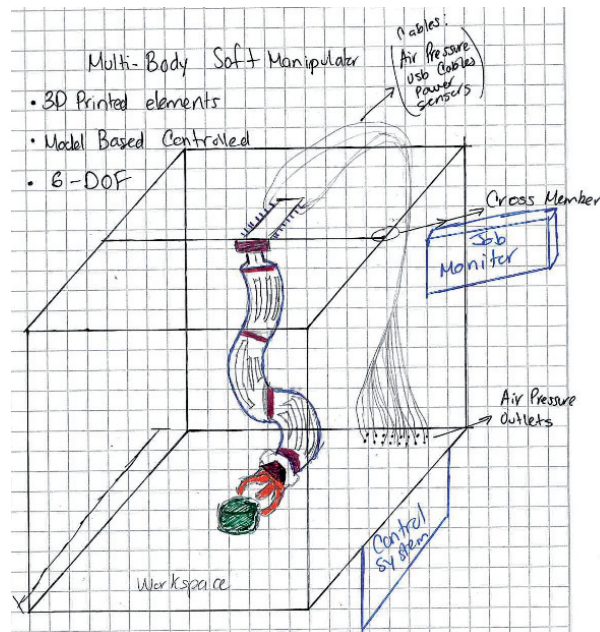 Multi-Body Soft Manipulator
• 3D Printed elements
• Model Based Controlled
• 6-DOF
Cables:
Air Pressure
usb Cables
power
sensers
Cross Member
Job
Moniter
Air Pressure
Outlets
Control
system
Workspace